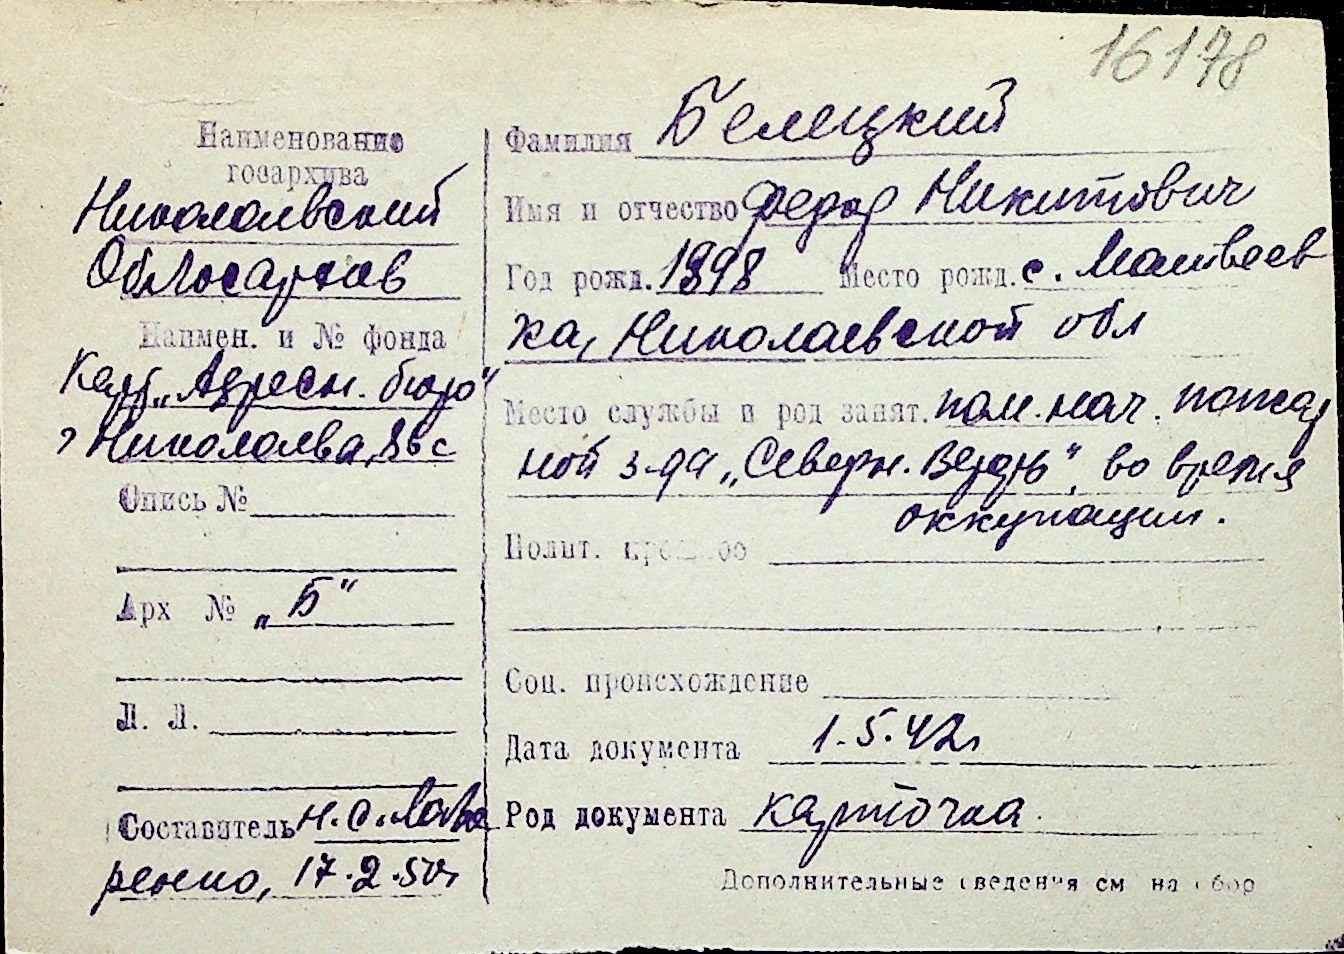 16178
Наименование
госархива
Николаевский
Облгосархив
Наимен. и № фонда
Карт. „Адресн. бюро"
г Николаева, 86 с
Опись №
Арх № „Б"
Л. Л.
Составитель Н. С. Лавре
ренко, 17.2.50г
Фамилия Белецкий
Имя и отчество Федор Никитович
Год рожд. 1898 Место рожд. с. Матвеев
ка, Николаевской обл
Место службы и род занят. пом. нач. пожар
ной з-да „Северн. Верфь", во время
оккупации.
Полит. прошлое
Соц. происхождение
Дата документа 1.5.42г
Род документа карточка
Дополнительные сведения см на обор